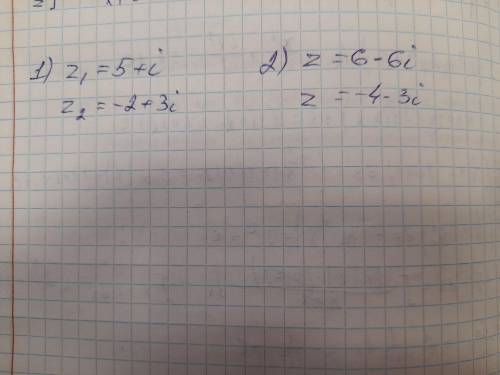 1) z₁ = 5+i
z₂ = -2+3i
2) z = 6-6i
z = -4-3i